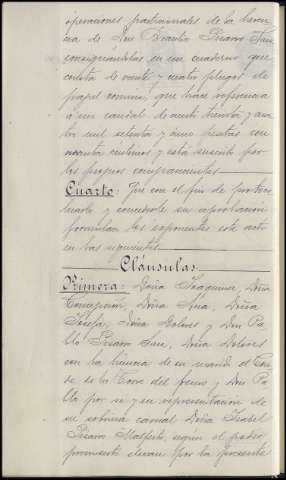 operaciones particionales de la heren
cia de Don Braulio Pizarro
consignándolas en un cuaderno que
consta de veinte y cuatro pliegos de
papel comun, que hace referencia
á un caudal de
mil setenta y cinco pesetas con
noventa céntimos y está suscrito por
los propios comparecientes
Cuarto: Que con el fin de protoco
lizarlo y concederle su aprobacion
formulan los exponentes este acto
en las siguientes
Cláusulas
Primera: Doña Joaquina, Doña
Concepcion, Doña Ana, Doña
Josefa, Doña Dolores y Don Pa
blo Pizarro, Doña Dolores
con la licencia de su marido el Con
de de la Torre del Fresno y Don Pa
blo por sí y en representacion de
su sobrina carnal Doña Isabel
Pizarro, segun el poder
elevan por la presente